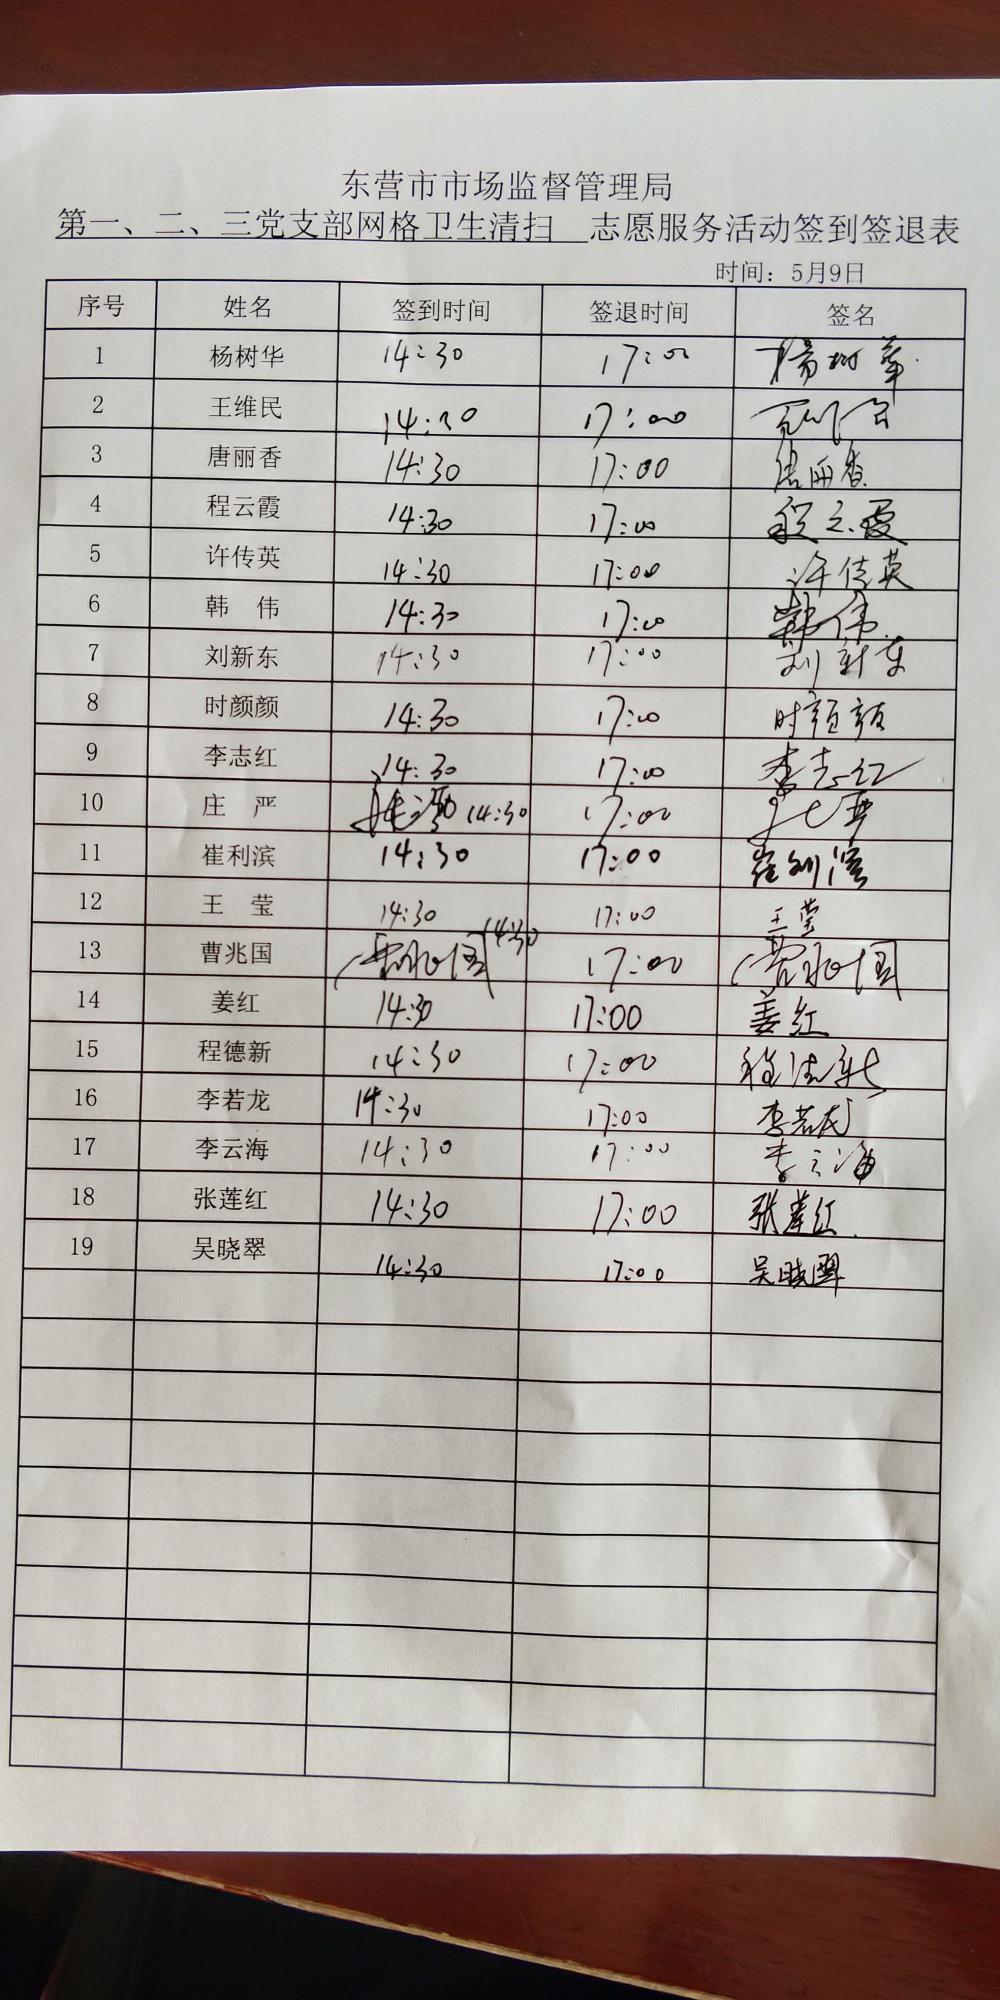 东营市市场监督管理局
第一、二、三党支部网格卫生清扫 志愿服务活动签到签退表
时间：5月9日
序号 姓名 签到时间 签退时间 签名
1 杨树华 14:30 17:00 楊树华
2 王维民 14:30 17:00
3 唐丽香 14:30 17:00 唐丽香
4 程云霞 14:30 17:00 程云霞
5 许传英 14:30 17:00 许传英
6 韩 伟 14:30 17:00 韩伟
7 刘新东 14:30 17:00 刘新东
8 时颜颜 14:30 17:00 时颜颜
9 李志红 14:30 17:00 李志红
10 庄 严 14:30 17:00
11 崔利滨 14:30 17:00 崔利滨
12 王 莹 14:30 17:00 王莹
13 曹兆国 曹兆国 14:30 17:00 曹兆国
14 姜红 14:30 17:00 姜红
15 程德新 14:30 17:00 程德新
16 李若龙 14:30 17:00 李若龙
17 李云海 14:30 17:00 李云海
18 张莲红 14:30 17:00 张莲红
19 吴晓翠 14:30 17:00 吴晓翠